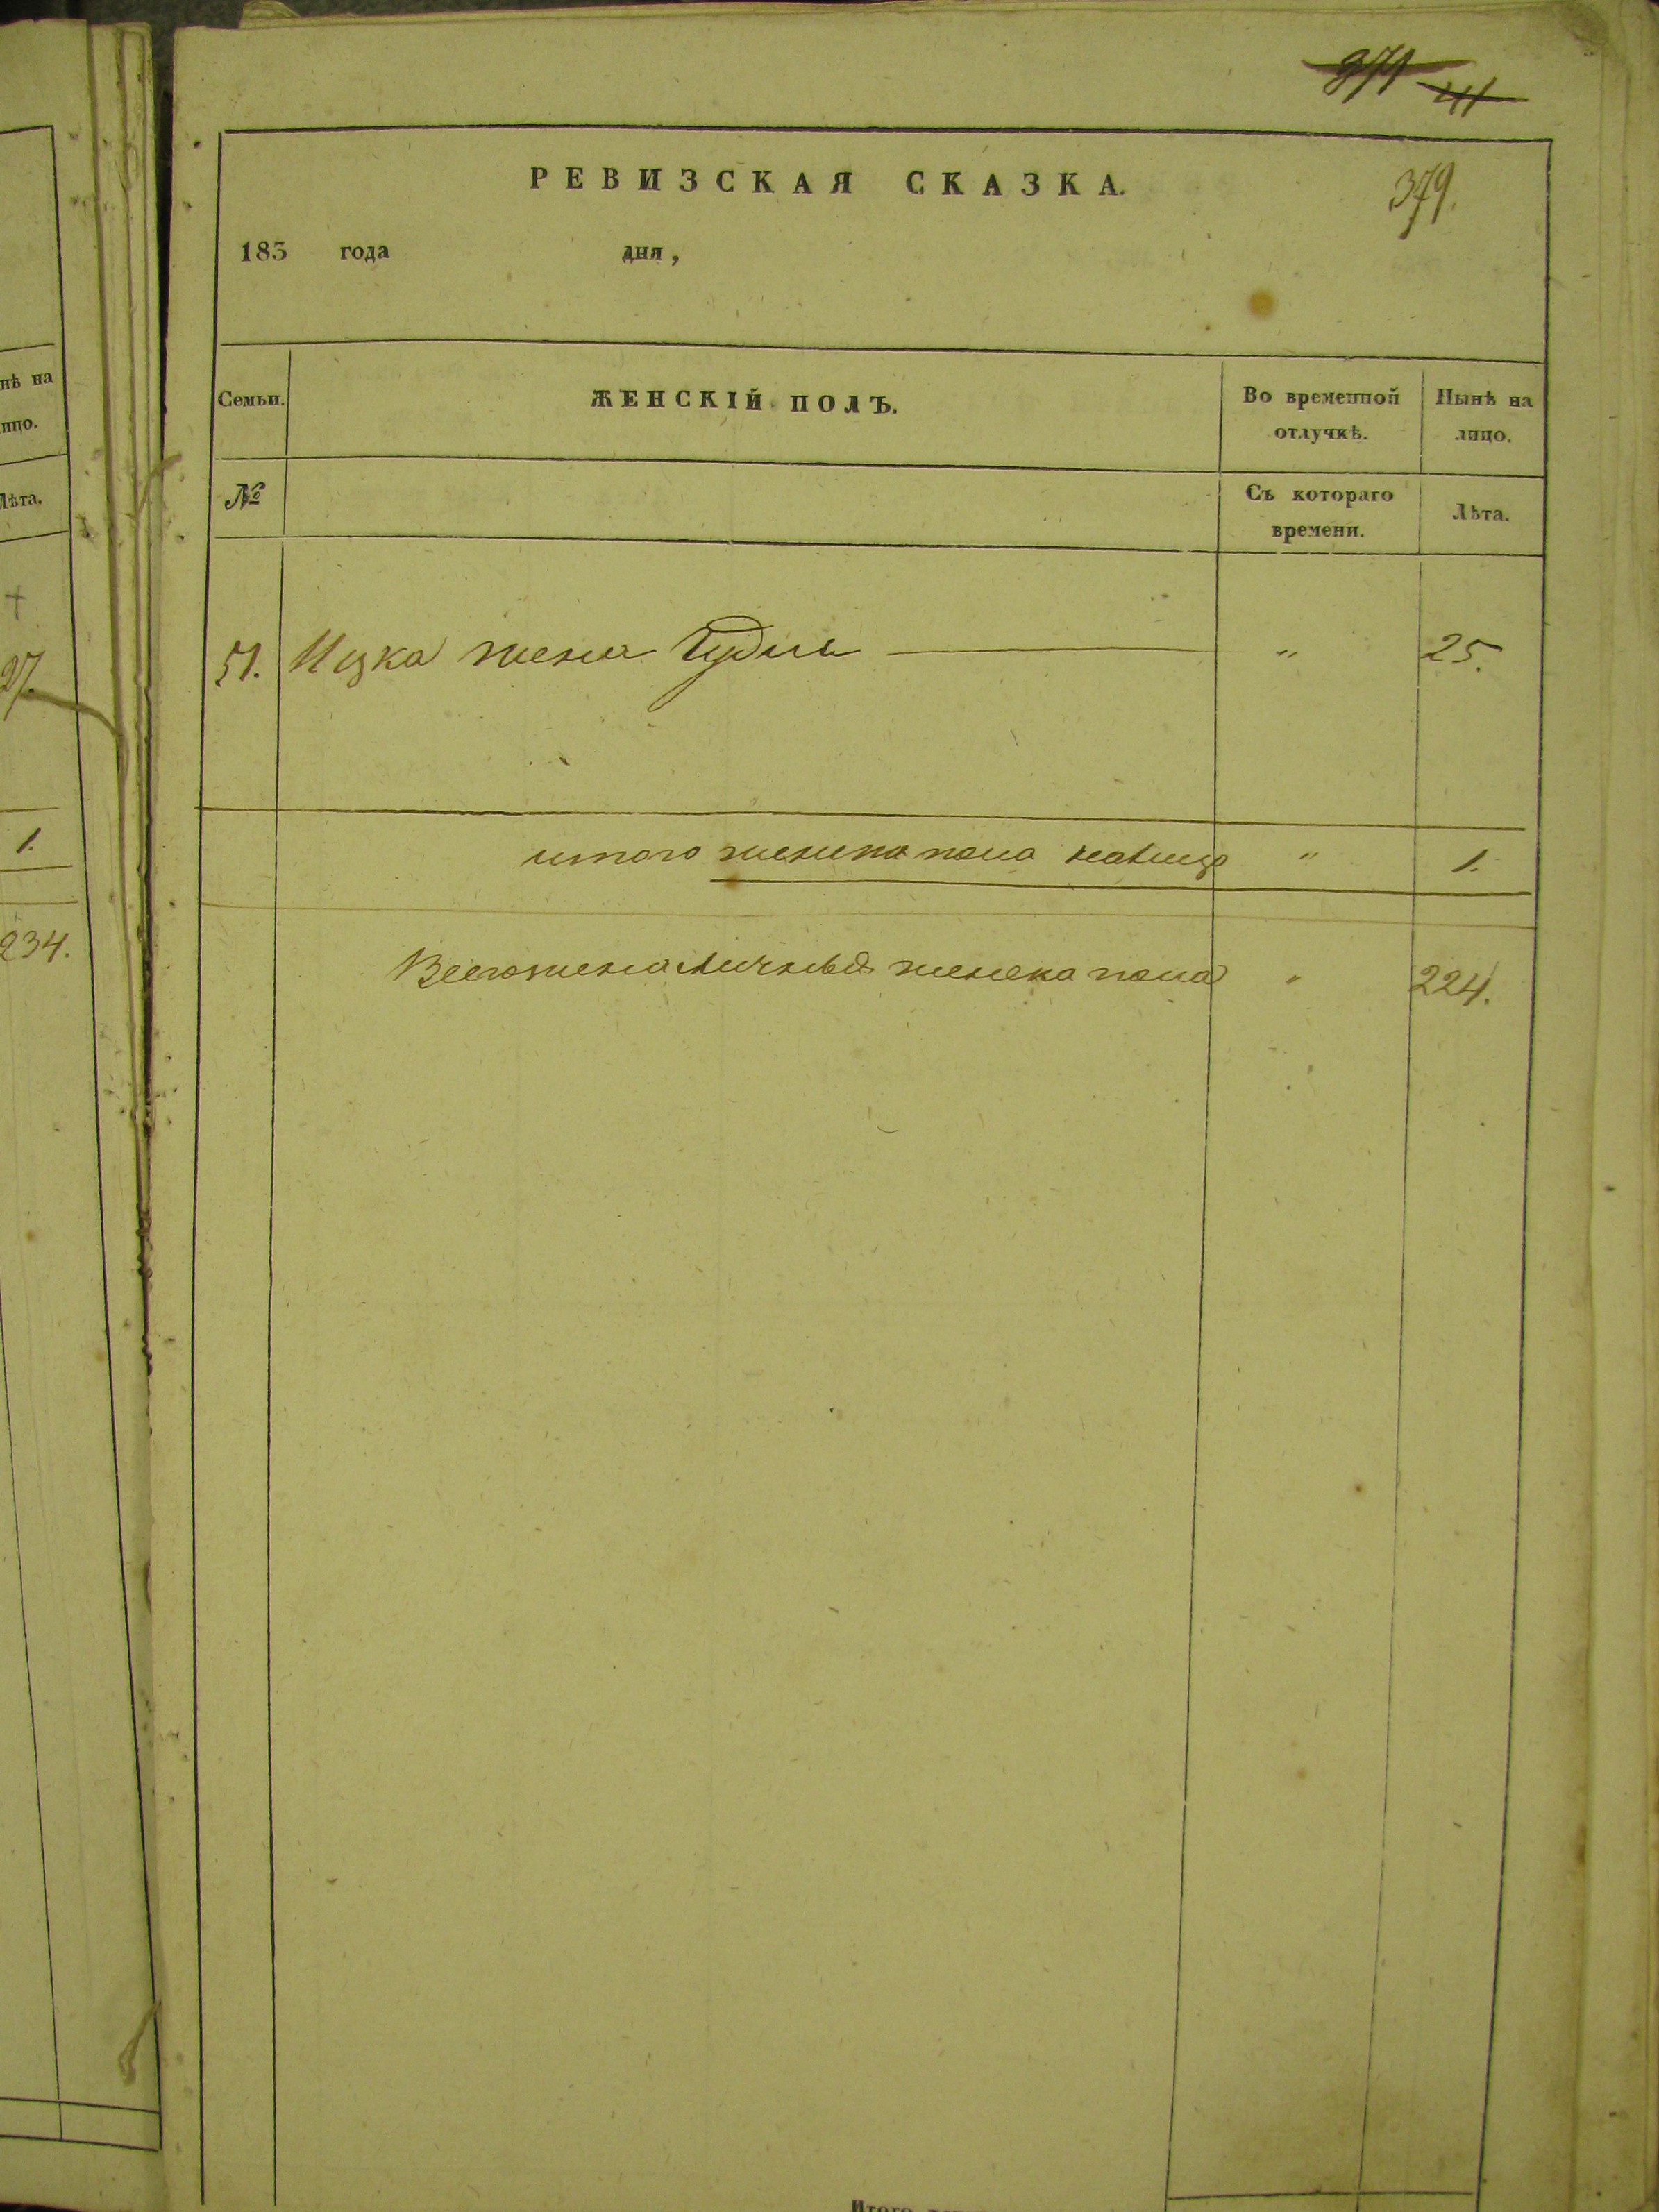 нѣ на
лицо.
Лѣта.
27.
1.
234.
379 41
РЕВИЗСКАЯ СКАЗКА.
379.
183 года дня,
Семьи. ЖЕНСКІЙ ПОЛЪ. Во временной отлучкѣ. Нынѣ на лицо.
№ Съ котораго времени. Лѣта.
51. Ицка жена Гудля " 25.
итого женска пола налицо " 1.
Всего женска пола " 224.
Итого